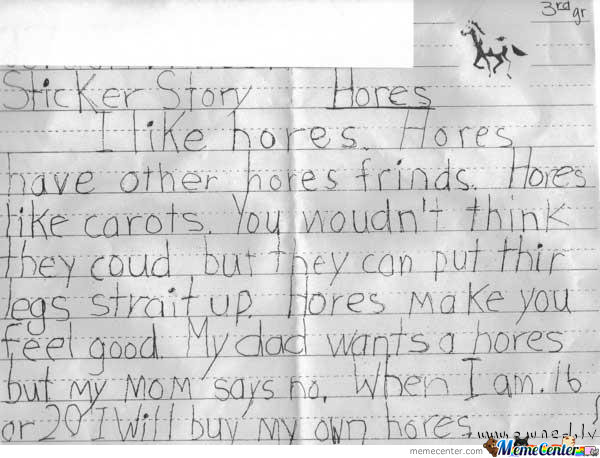 3rd gr
Sticker Story Hores
I like hores. Hores
have other hores frinds. Hores
like carots. You woudn't think
they coud but they can put thir
legs strait up. Hores make you
feel good. My dad wants a hores
but my mom says no. When I am 16
or 20 I will buy my own hores.
memecenter.com MemeCenter